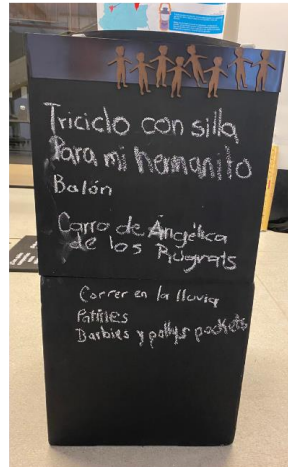 Triciclo con silla
Para mi hermanito
Balón
Carro de Angélica
de los Rugrats
Correr en la lluvia
Patines
Barbies y pollys pockets